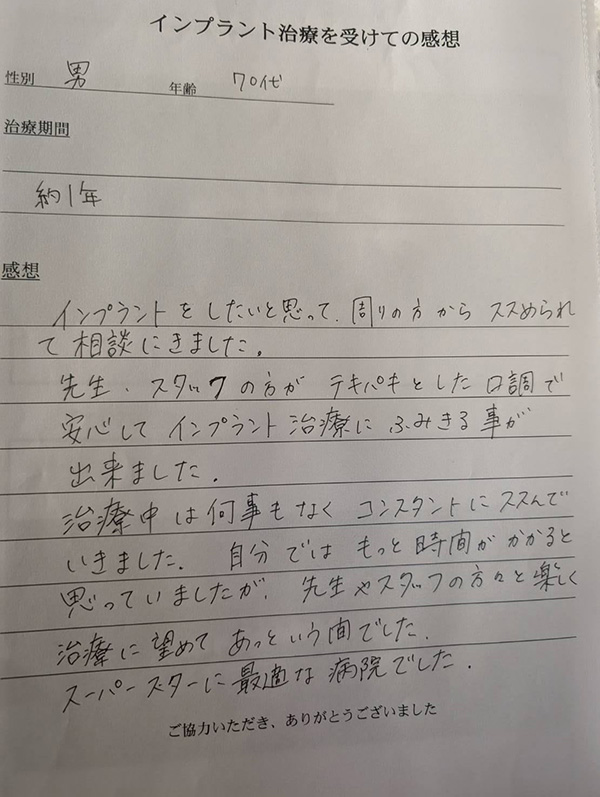 インプラント治療を受けての感想
性別 男 年齢 70代
治療期間
約1年
感想
インプラントをしたいと思って、周りの方からススめられ
て相談にきました。
先生、スタッフの方がテキパキとした口調で
安心してインプラント治療にふみきる事が
出来ました。
治療中は何事もなくコンスタントにススんで
いきました。自分ではもっと時間がかかると
思っていましたが、先生やスタッフの方々と楽しく
治療に望めてあっという間でした。
スーパースターに最適な病院でした。
ご協力いただき、ありがとうございました